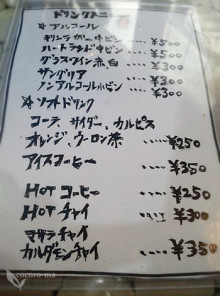 ドリンクメニュー
☆アルコール
キリンラガー中ビン ‥‥ ¥500
ハートランド中ビン ‥‥ ¥500
グラスワイン赤白 ‥‥ ¥300
サングリア ‥‥ ¥300
ノンアルコール小ビン ‥‥ ¥300
☆ソフトドリンク
コーラ、サイダー、カルピス
オレンジ、ウーロン茶 ‥‥ ¥250
アイスコーヒー ‥‥ ¥350
HOTコーヒー ‥‥ ¥250
HOTチャイ ‥‥ ¥300
マサラチャイ
カルダモンチャイ ‥‥ ¥350
cocoro-ma